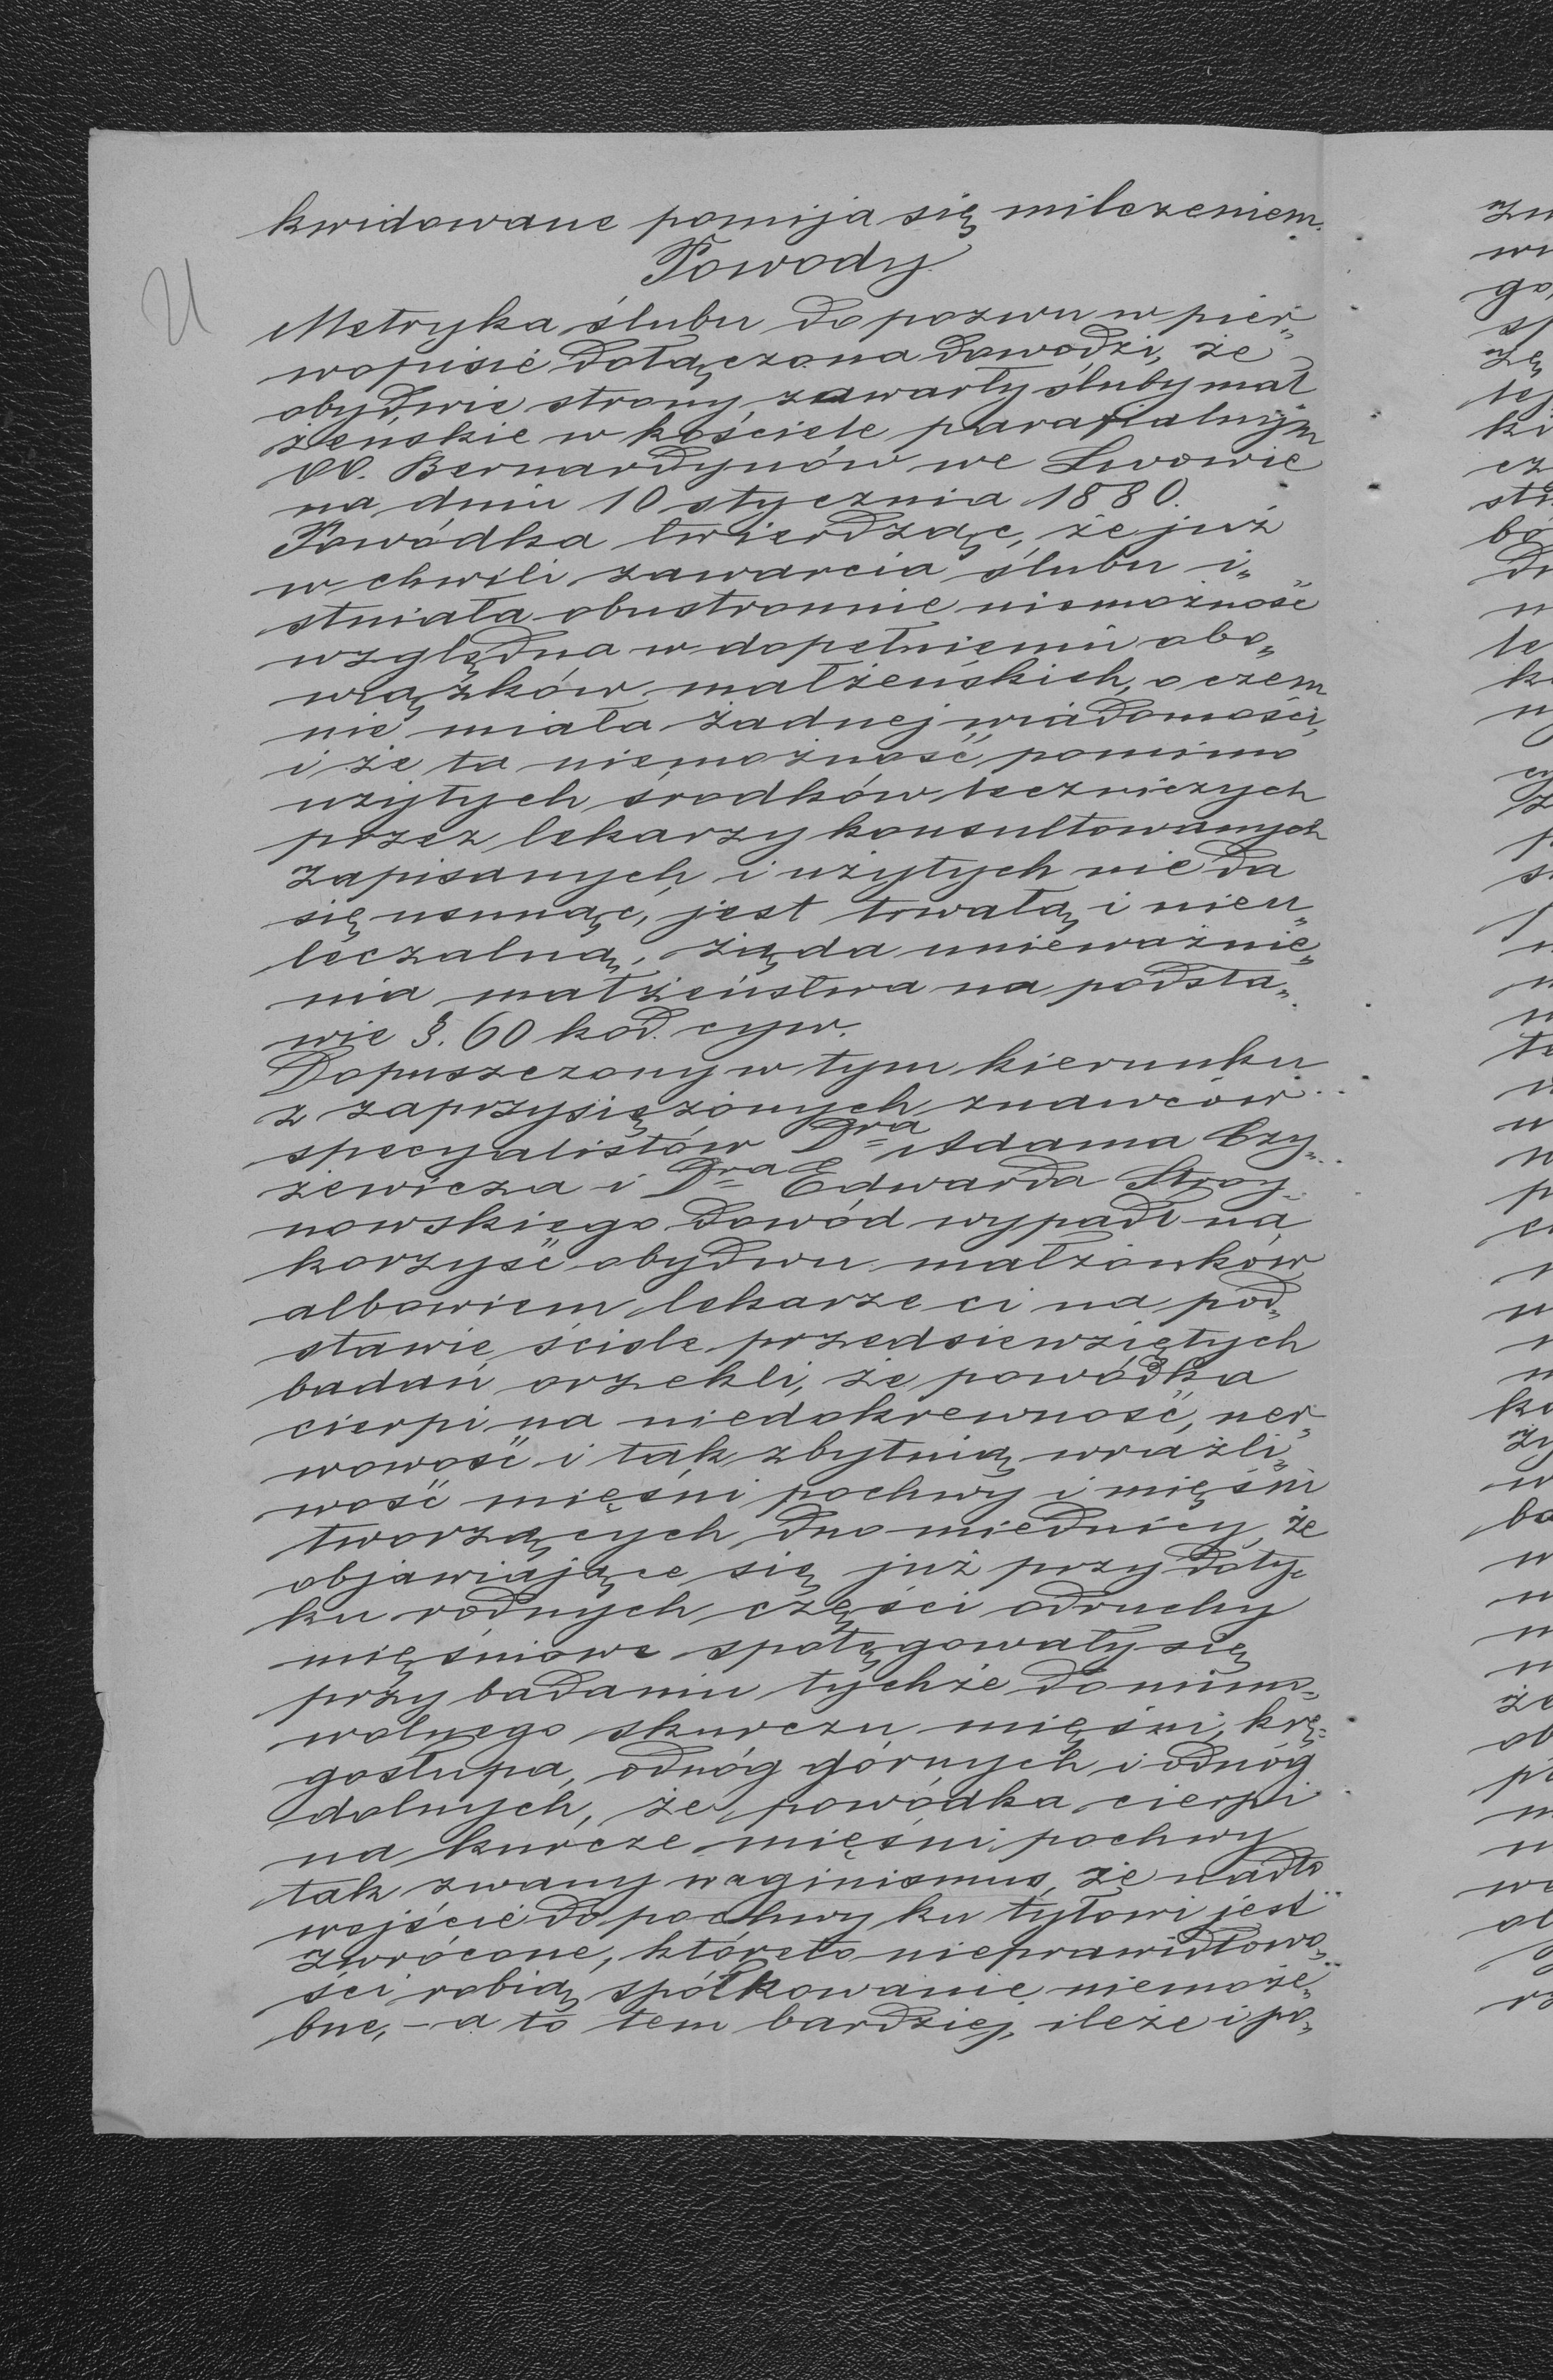 kwidowane pomija się milczeniem.
Powody
Metryka ślubu do pozwu w pier„
wopisie dołączona dowodzi, że
obydwie strony zawarły śluby mał
żeńskie w kościele parafialnym
OO. Bernardynów we Lwowie
na dniu 10 stycznia 1880.
Powódka twierdząc, że już
w chwili zawarcia ślubu i„
stniała obustronnie niemożność
względna w dopełnieniu obo„
wiązków małżeńskich, o czem
nie miała żadnej wiadomości,
i że ta niemożność pomimo
użytych środków leczniczych
przez lekarzy konsultowanych
zapisanych i użytych nie da
się usunąć, jest trwałą i nieu„
leczalną, żąda unieważnie„
nia małżeństwa na podsta„
wie §. 60 kod. cyw.
Dopuszczony w tym kierunku
z zaprzysiężonych znawców
specyalistów Dra Adama Czy„
żewicza i Dra Edwarda Stroy„
nowskiego dowód wypadł na
korzyść obydwu małżonków
albowiem lekarze ci na pod„
stawie ściśle przedsiewziętych
badań orzekli, że powódka
cierpi na niedokrewność, ner„
wowość i tak zbytnią wrażli„
wość mięśni pochwy i mięśni
tworzących dno miednicy, że
objawiające się już przy doty„
ku rodnych części odruchy
mięśniowe spotęgowały się
przy badaniu tychże do mimo„
wolnego skurczu mięśni, krę„
gosłupa, odnóg górnych i odnóg
dolnych, że powódka cierpi
na kurcze mięśni pochwy
tak zwany waginismus, że nadto
wejście do pochwy ku tyłowi jest
zwrócone, któreto nieprawidłowo„
ści robią spółkowanie niemoże„
bne, – a to tem bardziej, ileże i po„